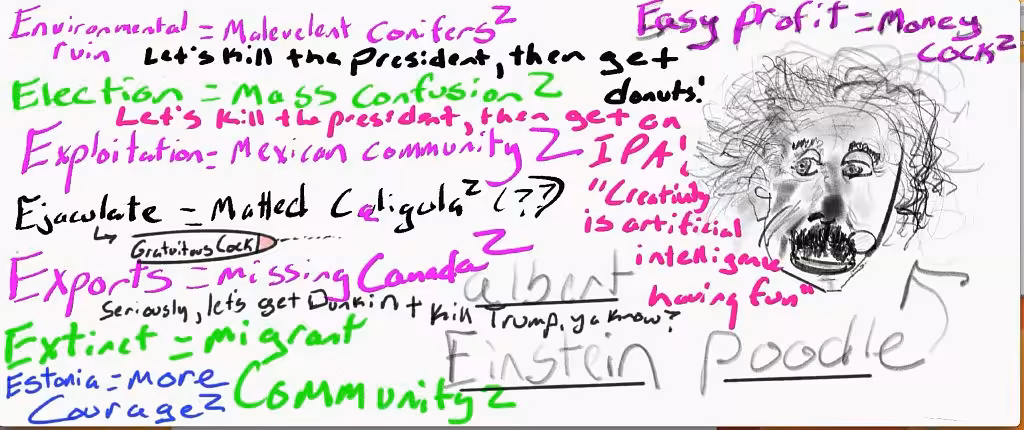 Environmental = Malevelent Conifers²
ruin
Easy Profit = Money
Cock²
Let's kill the president, then get
donuts!
Election = Mass Confusion 2
Let's kill the president, then get an
IPA!
Exploitation = Mexican community 2
Ejaculate = Matted Caligula² (??)
Gratuitous Cock
"Creativity
is artificial
intelligence
having fun"
Exports = missing Canada 2
Seriously, let's get Dunkin + kill Trump, ya know?
albert
Einstein poodle
Extinct = migrant
Community 2
Estonia = more
Courage 2